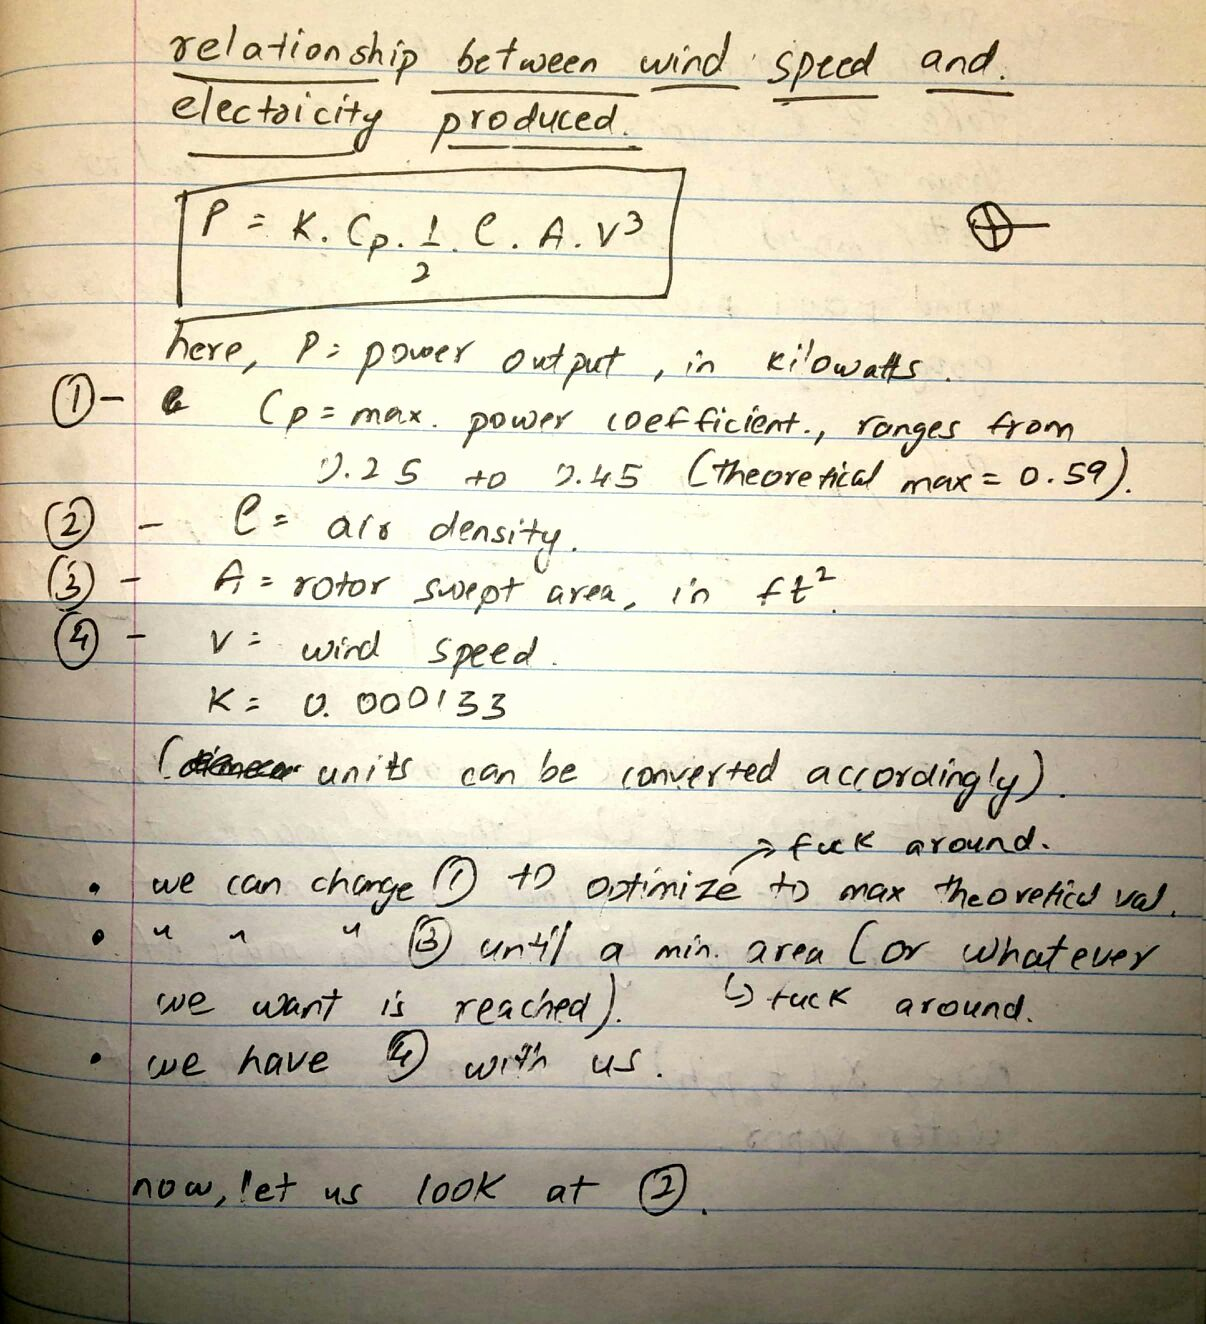 relationship between wind speed and.
electricity produced.
P = K. Cp. 1/2. ρ. A. V³
here, P = power output, in kilowatts.
①- Cp = max. power coefficient., ranges from
0.25 to 0.45 (theoretical max = 0.59).
② - ρ = air density.
③ - A = rotor swept area, in ft².
④ - V = wind speed.
K = 0.000133
( units can be converted accordingly).
→ fuck around.
• we can change ① to optimize to max theoretical val.
• " " " ③ until a min. area (or whatever
we want is reached). ↳ fuck around.
• we have ④ with us.
now, let us look at ②.